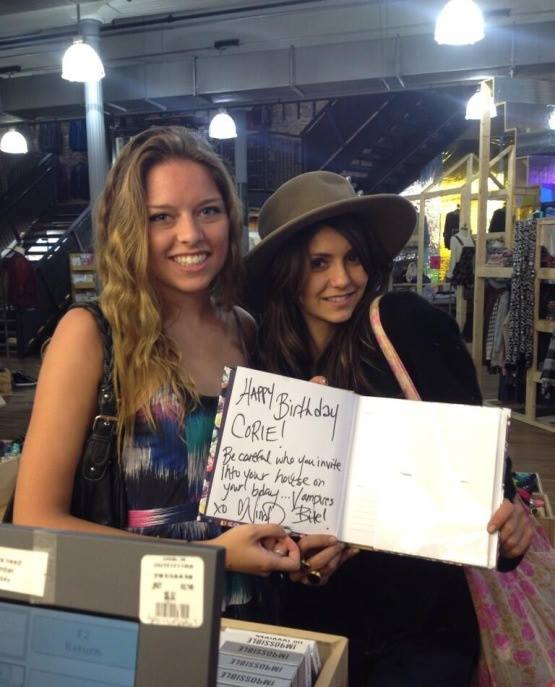 HAPPY Birthday
CORIE!
Be careful who you invite
into your house on
your bday... Vampires
xo Bite!
F2
Return
IMPOSSIBLE
IMPOSSIBLE
IMPOSSIBLE
IMPOSSIBLE